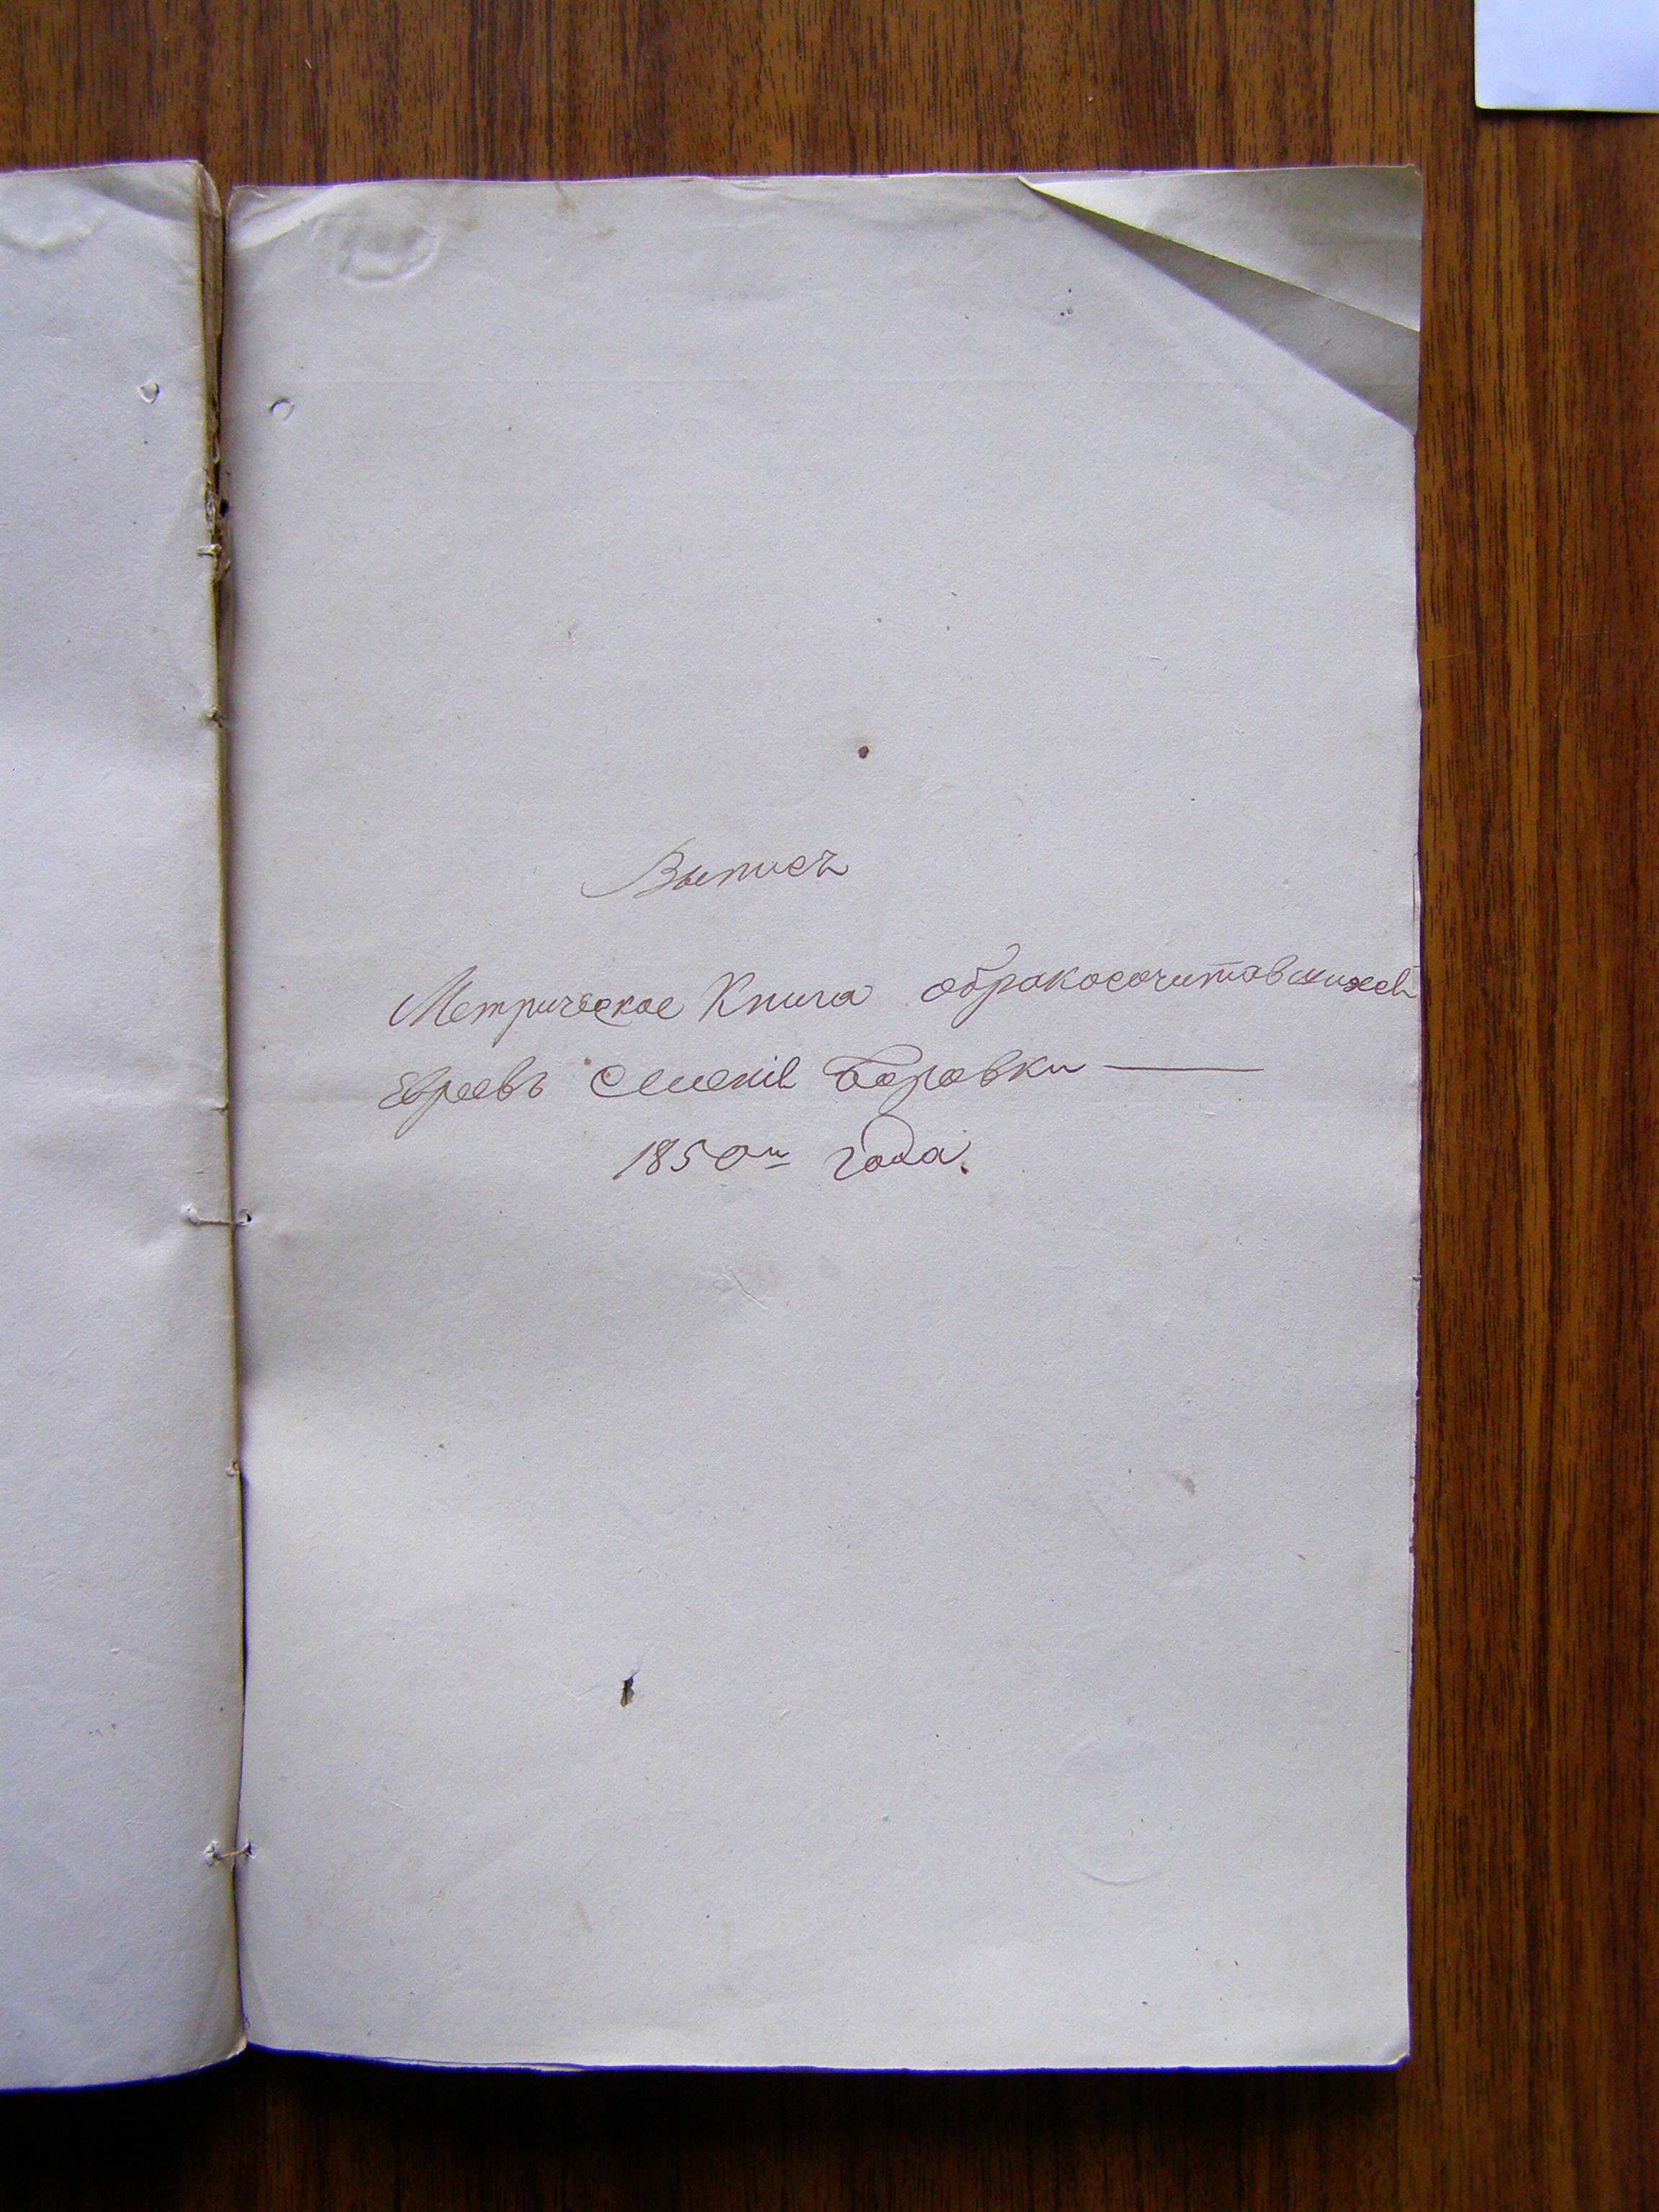 Выписъ
Метрическое Книга обракосочитавшихсь
Евреевъ Боровки
1850го года.